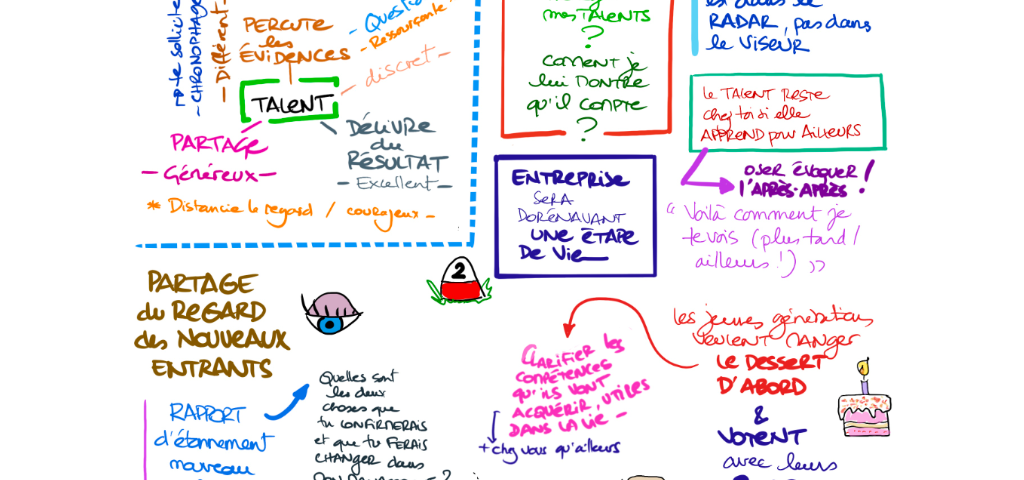 - CHRONOPHAGE
- Différent -
PERCUTE
les
ÉVIDENCES
- Question
- Ressourçante
- discret -
TALENT
PARTAGE
- Généreux -
DÉLIVRE
du
RÉSULTAT
- Excellent -
* Distancie le regard / courageux -
mes TALENTS
?
COMMENT je
lui MONTRE
qu'il COMPTE
?
RADAR, pas dans
le VISEUR
Le TALENT RESTE
chez toi si elle
APPREND pour AILLEURS
OSER ÉVOQUER
l'APRÈS-APRÈS !
" Voilà comment je
te vois (plus tard /
ailleurs !) "
ENTREPRISE
SERA
DORÉNAVANT
UNE ÉTAPE
DE Vie
2
PARTAGE
du REGARD
des NOUVEAUX
ENTRANTS
RAPPORT
d'étonnement
nouveau
Quelles sont
les deux
choses que
tu CONFIRMERAIS
et que tu FERAIS
CHANGER dans
CLARIFIER les
COMPÉTENCES
qu'ils VONT
ACQUÉRIR, UTILES
DANS LA Vie -
+ chez vous qu'ailleurs
Les jeunes générations
VEULENT MANGER
LE DESSERT
D'ABORD
&
VOTENT
avec leurs